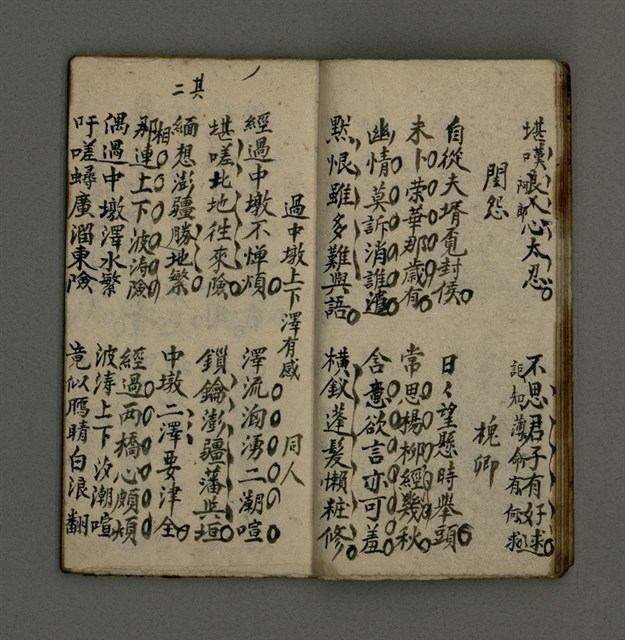 堪嘆良人心太忍 不思君子有好逑
阿郎 詎知薄命有何求
閨怨 槐卿
自從夫壻覓封侯 日々望懸時舉頭
未卜荣華那歲有 常思楊柳經幾秋
幽情莫訴消誰遣 含意欲言亦可羞
默恨雖多難與語 橫釵蓬髮懶粧修
過中墩上下澤有感 同人
經過中墩不憚煩 澤流洶湧二潮喧
堪嗟北地徃來險 鎖鑰澎疆藩與垣
緬想澎疆勝地繁 中墩二澤要津全
相
那連上下波濤險 經過两橋心頗煩
其二
偶過中墩澤水繁 波涛上下汐潮喧
吁嗟蟳廣溜東險 竟似鴈晴白浪翻